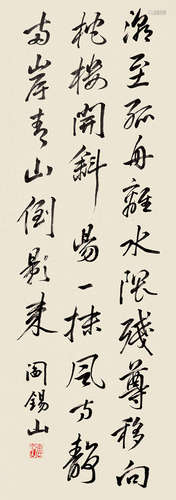 潮至孤舟離水隈殘尊移向
柁樓開斜陽一抹風方靜
兩岸青山倒影來 閻錫山